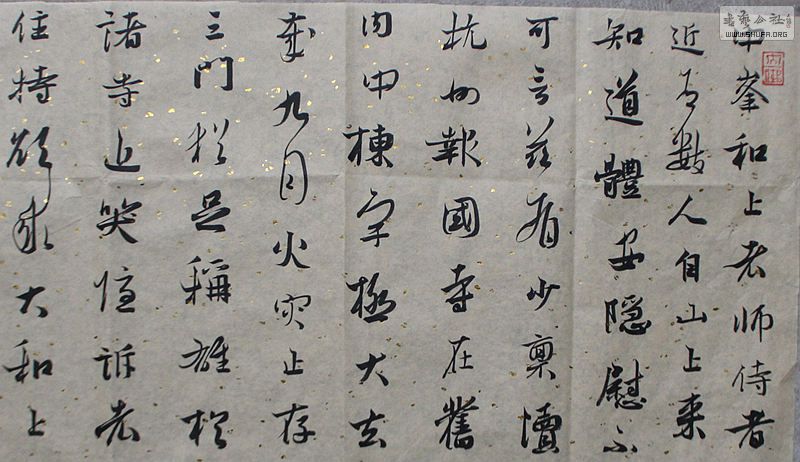 書藝公社
WWW.SHUFA.ORG
中峯和上老師侍者
近有數人自山上来
知道體安隱慰不
可言茲有少稟瀆
杭州報國寺在舊
内中棟宇極大去
歲九月火灾止存
三門猶足稱雄於
諸寺近咲隱訢老
住持願求大和上